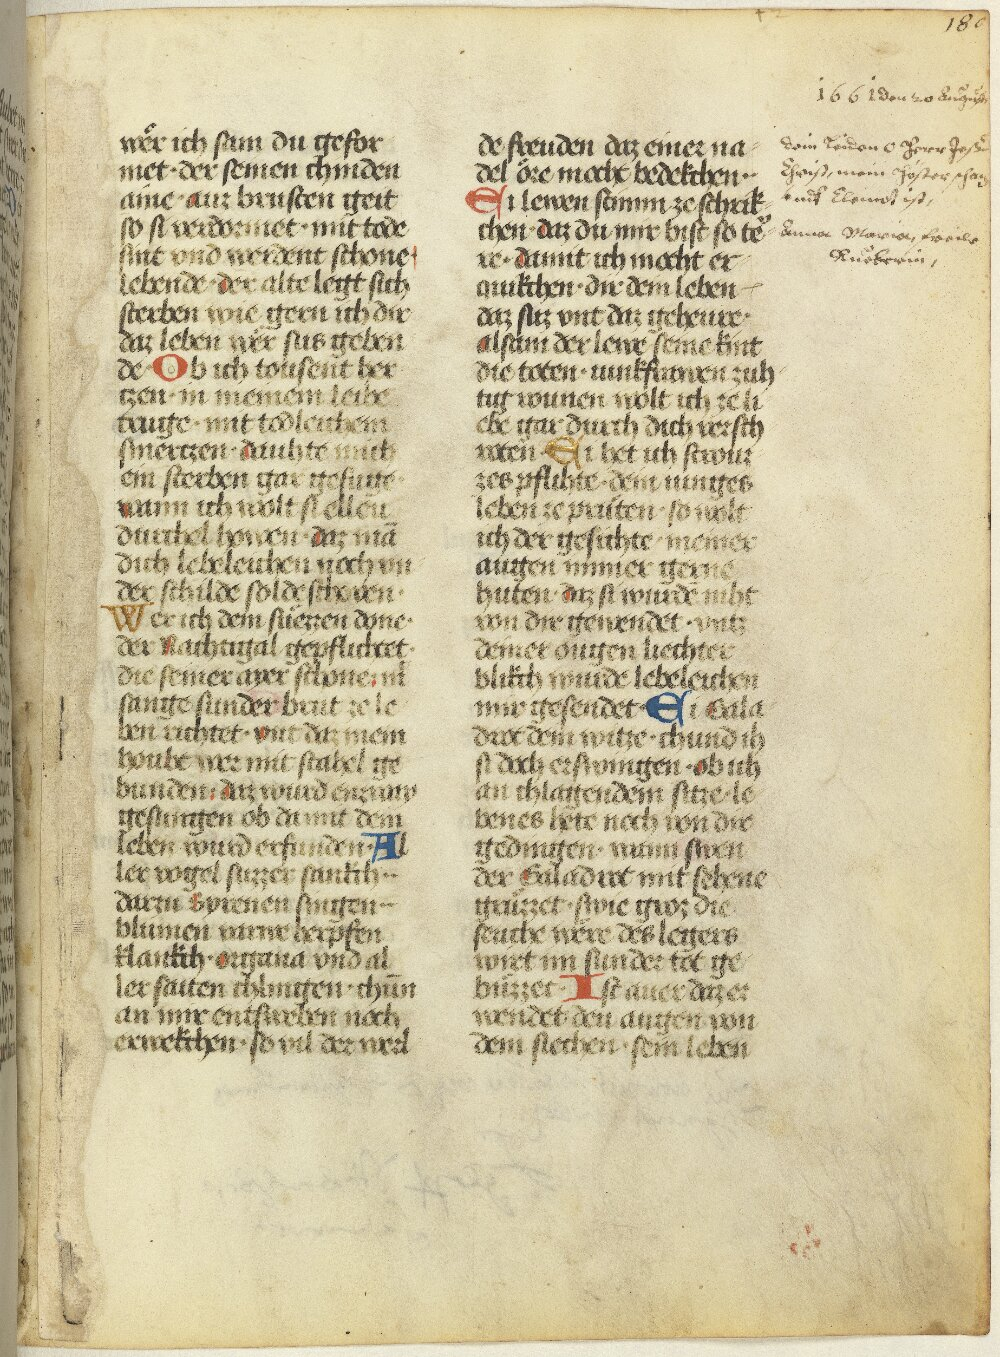 180
1661 den 20 Augusti
wer ich sam du gefor
met · der seinen chinden
aine · auz brusten geit
so si verdorret · mit tode
sint vnd werdent schone
lebende · der alte legt sich
sterben wie gern ich dir
daz leben wer sus geben
de · Ob ich tousent her
tzen · in meinem leibe
truge · mit todleichem
smertzen · dauhte mich
ein sterben gar gefuge ·
wann ich wolt si ellev
durchel howen · daz mā
dich lebeleichen noch vn
der schilde solde schowen ·
Wer ich dem suezzen done ·
der Nachtigal gepflichtet ·
die seiner ayer schone · mit
sange sunder brut ze le
ben richtet · vnt daz mein
houbt wer mit stahel ge
bunden · daz wurd enzway
gesungen ob damit dem
leben wurd erfunden · Al
ler vogel suzzer sankch ··
darzu Syrenen singen ··
blumen varwe herpfen
klankch · organa vnd al
ler saiten chlingen · chūn
an mir entsweben noch
erwekchen · so vil der werl
de freuden daz einer na
del öre mocht bedekchen ··
Ei lewen stimm ze schrik
chen · daz du mir bist so te
re · damit ich mocht er
quikchen · dir dem leben
daz suz vnt daz geheure ·
alsam der lewe seine kint
die toten · iunkfrowen zuh
tig wunen wolt ich ze li
ebe gar durch dich versch
roten · Ei het ich strouz
zes pflihte · dein iunges
leben ze pruten · so wolt
ich der gesichte · meiner
augen nimmer gerne
huten · daz si wurdē niht
von dir gewendet · vntz
deiner ougen liechter
blikch wurde lebeleichen
mir gesendet · Ei Gala
drot dem witze · chund ih
si doch erswingen · ob ich
an chlagendem sitze · le
benes hete noch von dir
gedingen · wann swen
der Galadrot mit sehene
gruzzet · swie groz die
seuche were des legers
wirt im sunder tot ge
buzzet · Ist auer daz er
wendet den augen von
dem siechen · sein leben
dein Leiden O Herr Jesu
Christ, mein höster schatz
und Cleinot ist,
Anna Maria,